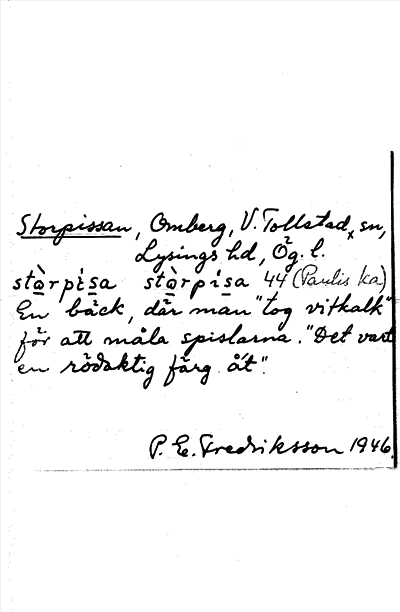 Storpissan, Omberg, V. Tollstad sn,
Lysings hd, Ög. l.
stɑ̀rpísa stɑ̀rpísa 44 (Paulis ka)
En bäck, där man "tog vitkalk"
för att måla spislarna. "Det vart
en rödaktig färg å't".
P. E. Fredriksson 1946.